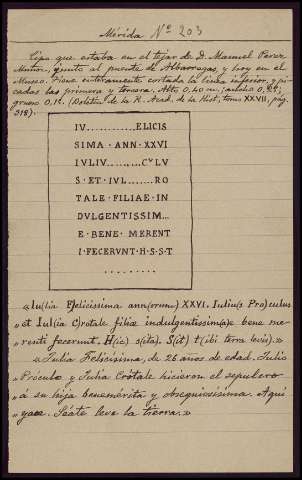 Mérida Nº 203
Cipo que estaba en el tejar de D. Manuel Perez
junto al puente de Albarregas, y hoy en el
Museo. Tiene enteramente cortada la linea inferior, y pi-
cadas las primera y tercera. Alto, 0,40 m.; ancho 0,24;
grueso 0,12. (Boletin de la R. Acad. de la Hist, tomo XXVII, pág.
318).
IV............ELICIS
SIMA · ANN · XXVI
IVLIV.......CVLV
S · ET · IVL......RO
TALE · FILIAE · IN
DVLGENTISSIM...
E · BENE · MERENT
I · FECERVNT · H · S · S · T
.........
«Iu(lia F)elicissima ann(orum) XXVI. Iuliu(s Pro)culus
» et Iul(ia C)rotale filiæ indulgentissim(a)e bene me-
» renti fecerunt. H(ic) s(ita). S(it) t(ibi terra levis).»
«Julia Felicísima, de 26 años de edad. Julio
» Próculo y Julia Crótale hicieron el sepulcro
» á su hija benemérita y obsequiosísima. Aquí
» yace. Séate leve la tierra.»